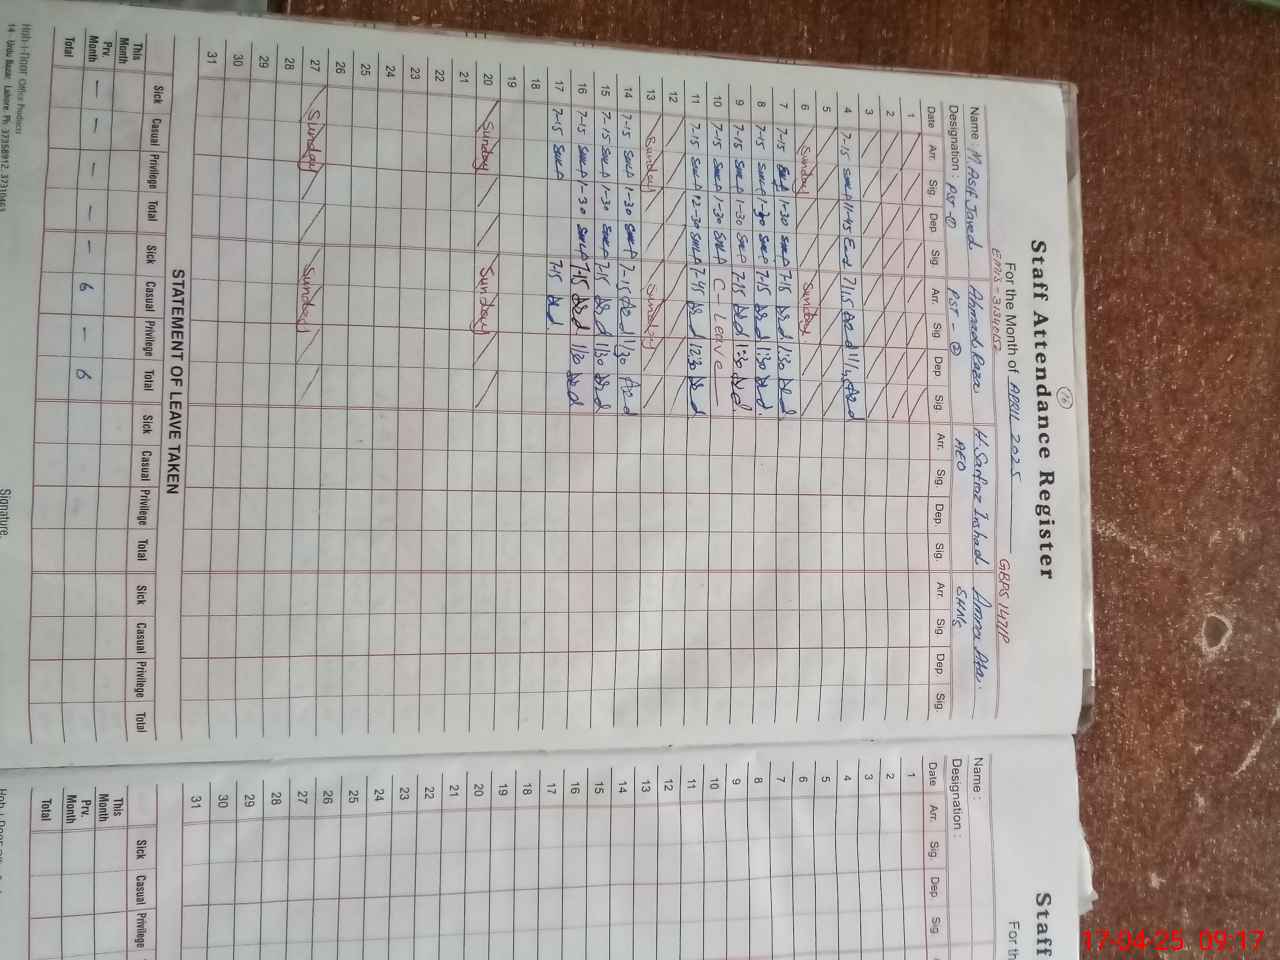 16
Staff Attendance Register
For the Month of APRIL 2025
EMIS - 31340152 GBPS 147/P
Name : M. Asif Javed Ahmad Raza H. Sarfraz Irshad
Designation : PST-① PST-② AEO
Date Arr. Sig. Dep. Sig. Arr. Sig. Dep. Sig. Arr. Sig. Dep. Sig. Arr. Sig. Dep. Sig.
1
2
3
4 7-15 11-45 7/15
5
6 Sunday Sunday
7 7-15 1-30 7-15 1:30
8 7-15 1-30 7-15 1:30
9 7-15 1-30 7-15 1:30
10 7-15 1-30 C - Leave
11 7-15 12-30 7-45 12:30
12
13 Sunday Sunday
14 7-15 1-30 7-15 1/30
15 7-15 1-30 7-15 1/30
16 7-15 1-30 7-15 1/30
17 7-15 7-15
18
19
20 Sunday Sunday
21
22
23
24
25
26
27 Sunday Sunday
28
29
30
31
STATEMENT OF LEAVE TAKEN
Sick Casual Privilege Total Sick Casual Privilege Total Sick Casual Privilege Total Sick Casual Privilege Total
This Month
Prv. Month - - - - - 6 - 6
Total
Office Products
14 - Urdu Bazar, Lahore. Ph: 37358912, 37310461
Signature.
Staff
For th
Name :
Designation :
Date Arr. Sig. Dep. Sig.
1
2
3
4
5
6
7
8
9
10
11
12
13
14
15
16
17
18
19
20
21
22
23
24
25
26
27
28
29
30
31
Sick Casual Privilege
This Month
Prv. Month
Total
17-04-25 09:17